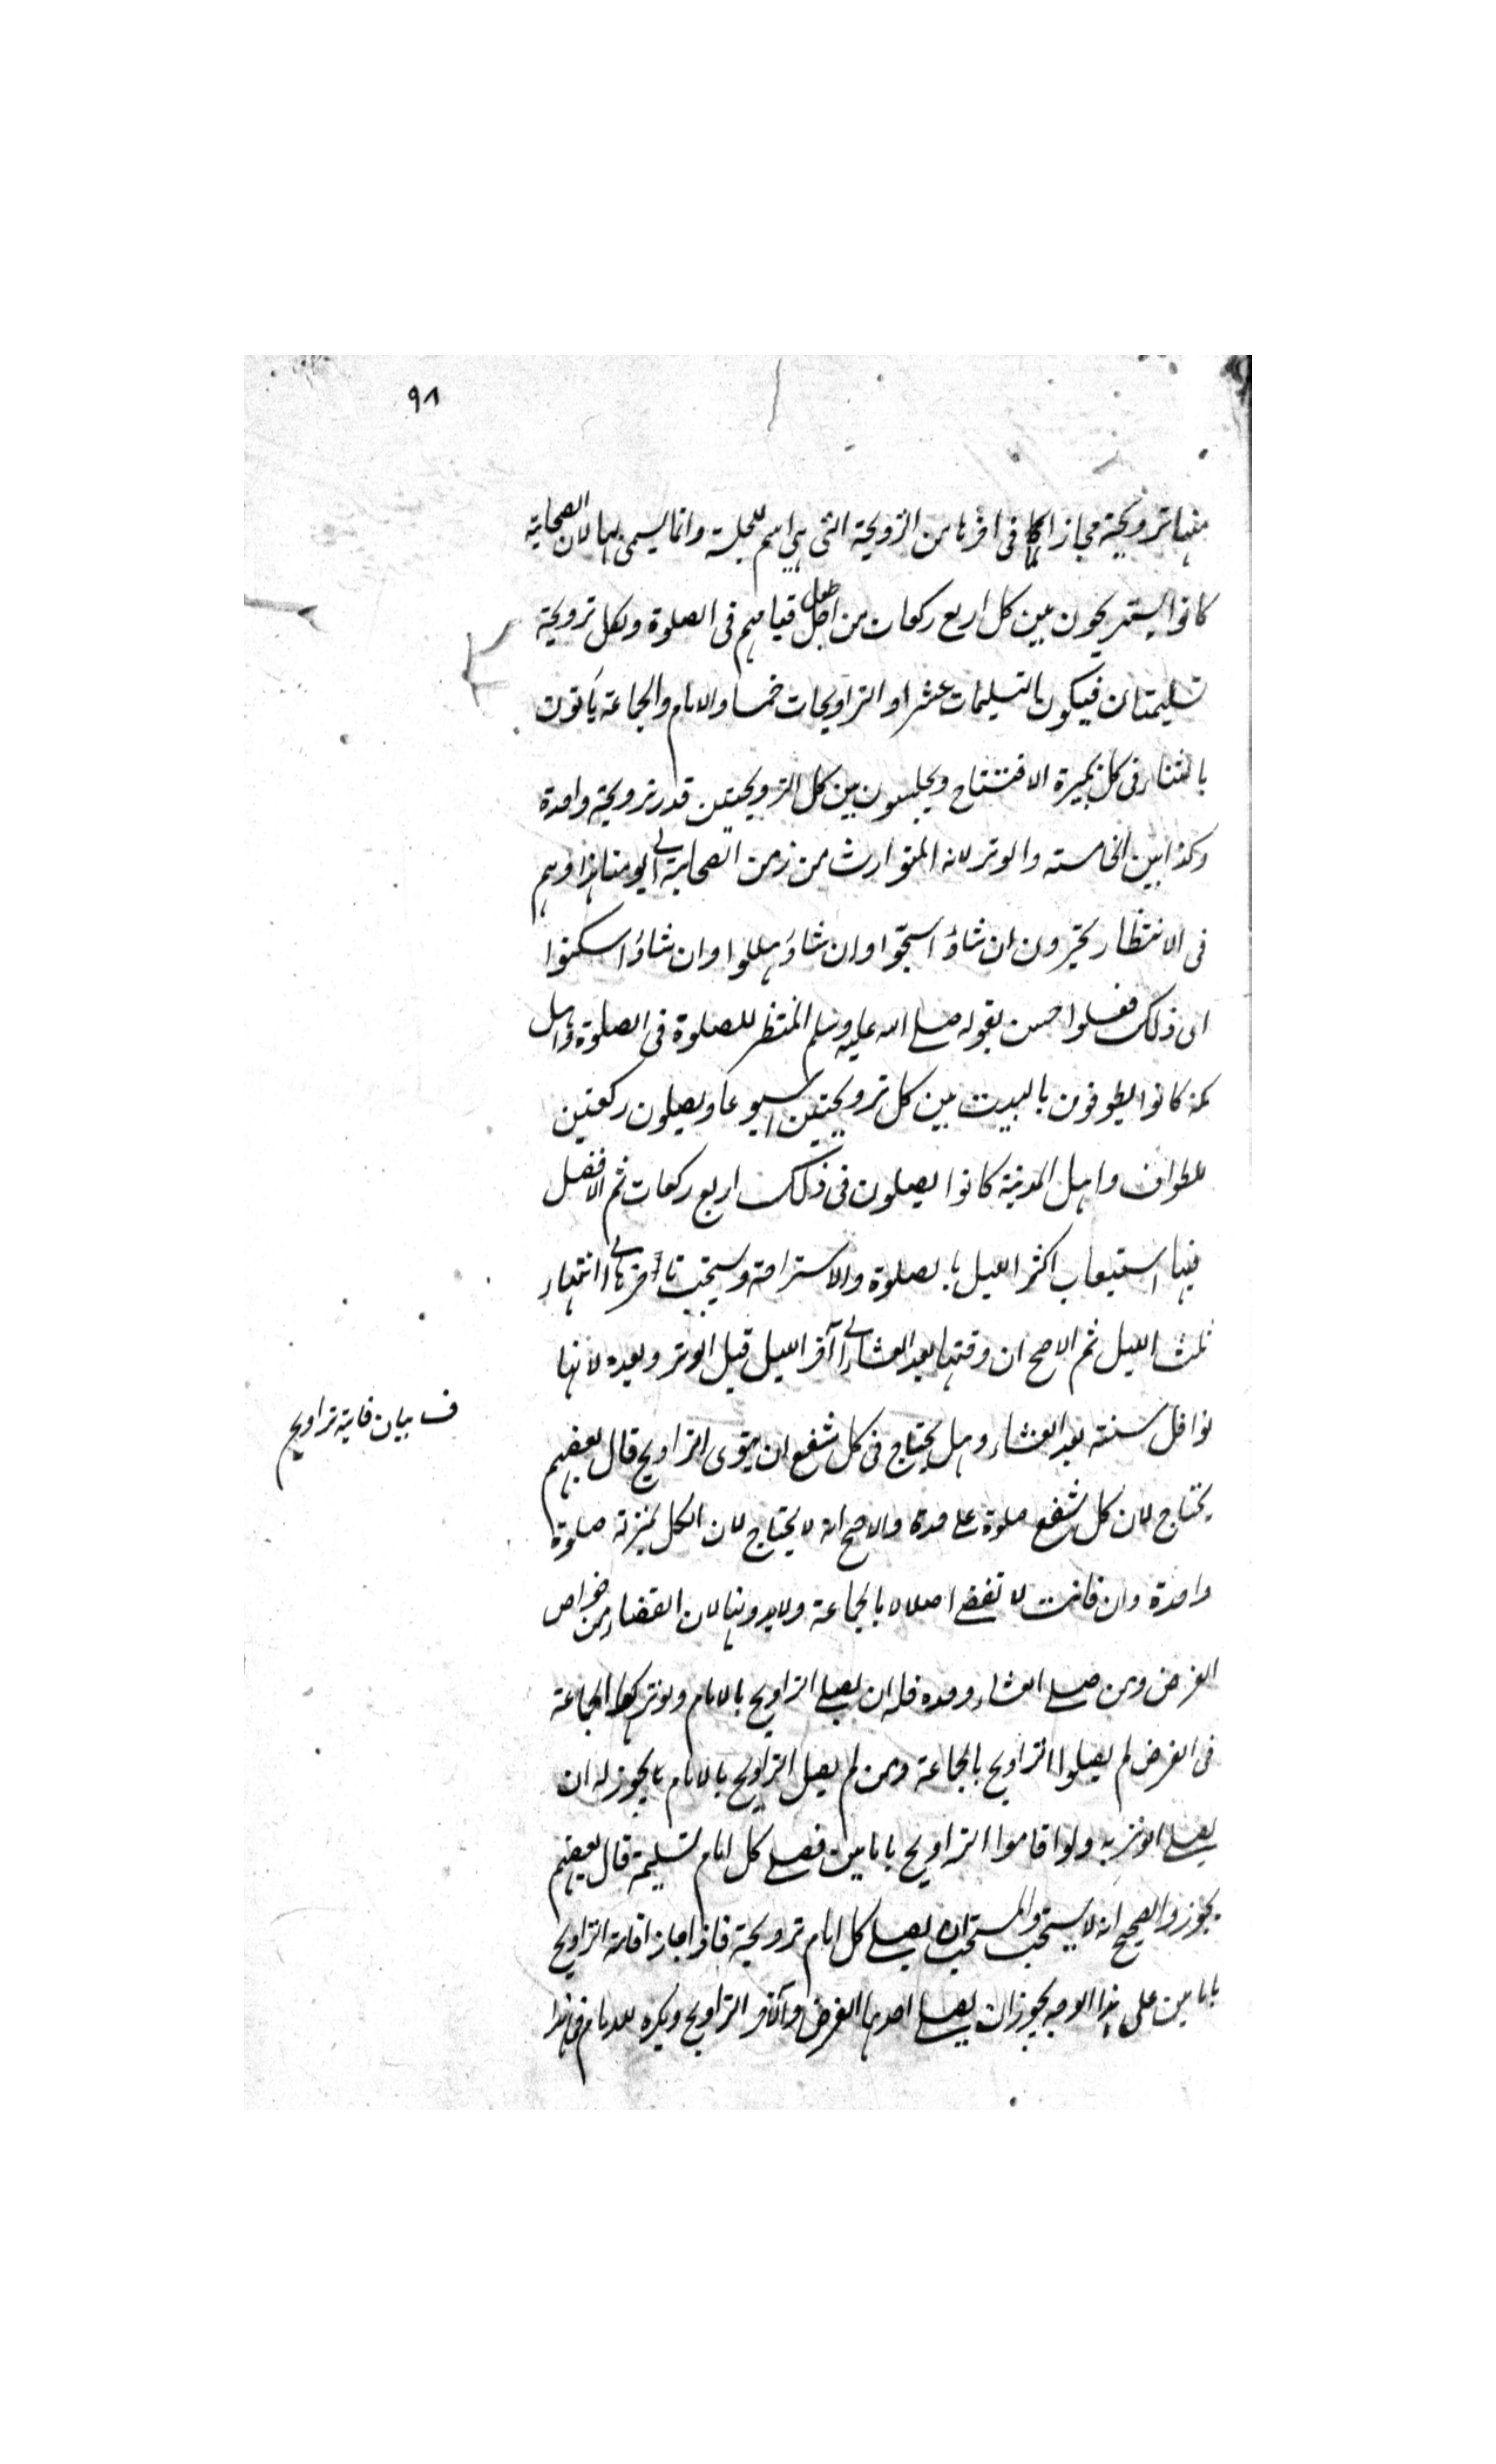 ٩٨
منها ترويحة مجازا لما فى اخرها من الترويحة التى هى اسم للجلسة وانما يسمى بها لان الصحابة
كانوا يستريحون بين كل اربع ركعات من اجل طول قيامهم فى الصلوة ولكل ترويحة
تسليمتان فيكون التسليمات عشرا والترويحات خمسا والامام والجماعة يأتون
بالثناء فى كل تكبيرة الافتتاح ويجلسون بين كل الترويحتين قدر ترويحة واحدة
وكذا بين الخامسة والوتر لانه المتوارث من زمن الصحابة الى يومنا هذا وهم
فى الانتظار يخيرون ان شاؤا سبحوا وان شاؤا هللوا وان شاؤا سكتوا
اى ذلك فعلوا حسن بقوله صلى الله عليه وسلم المنتظر للصلوة فى الصلوة واهل
مكة كانوا يطوفون بالبيت بين كل ترويحتين اسبوعا ويصلون ركعتين
للطواف واهل المدينة كانوا يصلون فى ذلك اربع ركعات ثم الافضل
فيها استيعاب اكثر الليل بالصلوة والاستراحة ويستحب تأخرها الى انتهاء
ثلث الليل ثم الاصح ان وقتها بعد العشاء الى آخر الليل قبل الوتر وبعده لانها
نوافل سنة بعد العشاء وهل يحتاج فى كل شفع ان ينوى التراويح قال بعضهم
ف بيان فاية تراويح
يحتاج لان كل شفع صلوة على حدة والاصح انه لا يحتاج لان الكل بمنزلة صلوة
واحدة وان فاتت لا تقضى اصلا لا بالجماعة ولا بدونها لان القضاء من خواص
الفرض ومن صلى العشاء وحده فله ان يصلى التراويح بالامام ولو تركوا الجماعة
فى الفرض لم يصلوا التراويح بالجماعة ومن لم يصل التراويح بالامام يجوز له ان
يصلى الوتر به ولو اقاموا التراويح بامامين فصلى كل امام تسليمة قال بعضهم
يجوز والصحيح انه لا يستحب والمستحب ان يصلى كل امام ترويحة فاذا جاز اقامة التراويح
بامامين على هذا الوجه يجوز ان يصلى احدهما الفرض والآخر التراويح ويكره للامام فى هذا